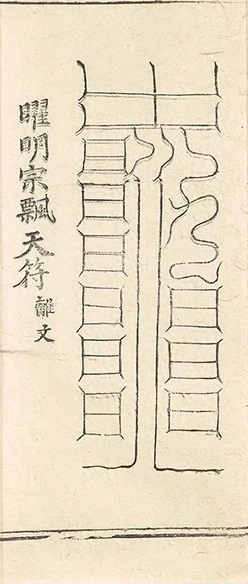 曜明宗飄天符
離文